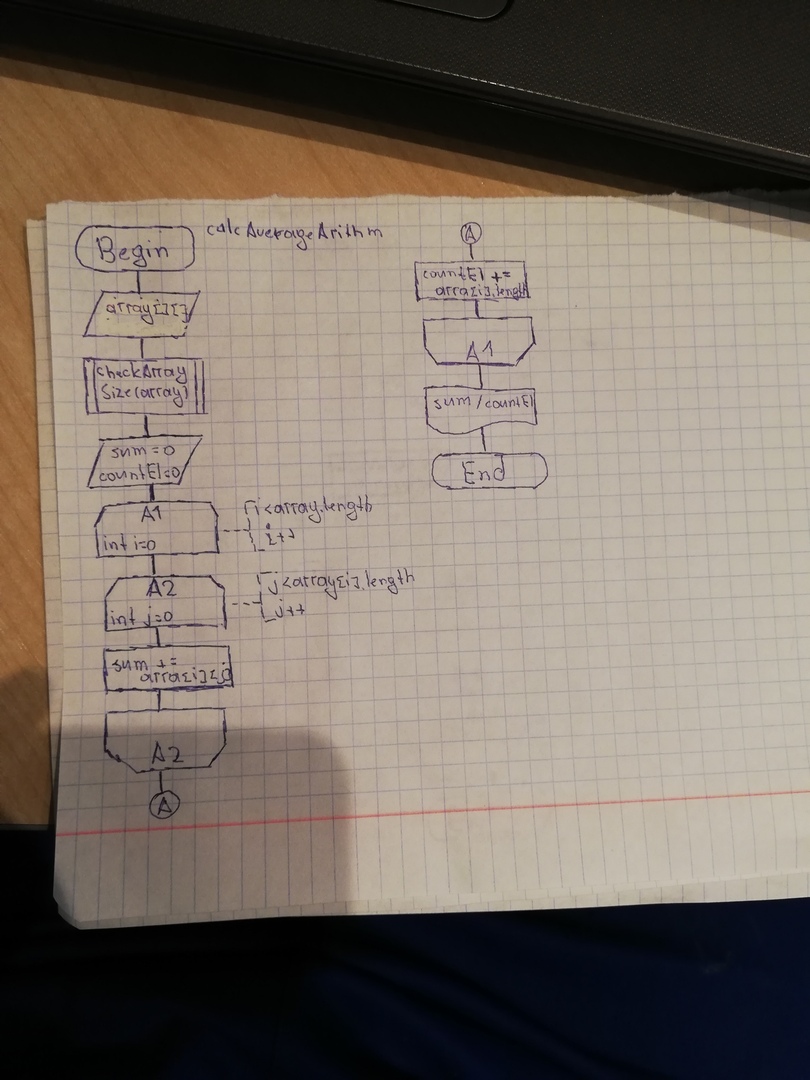 calcAverageArithm
Begin
array[][]
checkArray
Size(array)
sum=0
countEl=0
A1
int i=0
i<array.length
i++
A2
int j=0
j<array[i].length
j++
sum +=
arra[i][j]
A2
A
A
countEl +=
arra[i].length
A1
sum/countEl
End